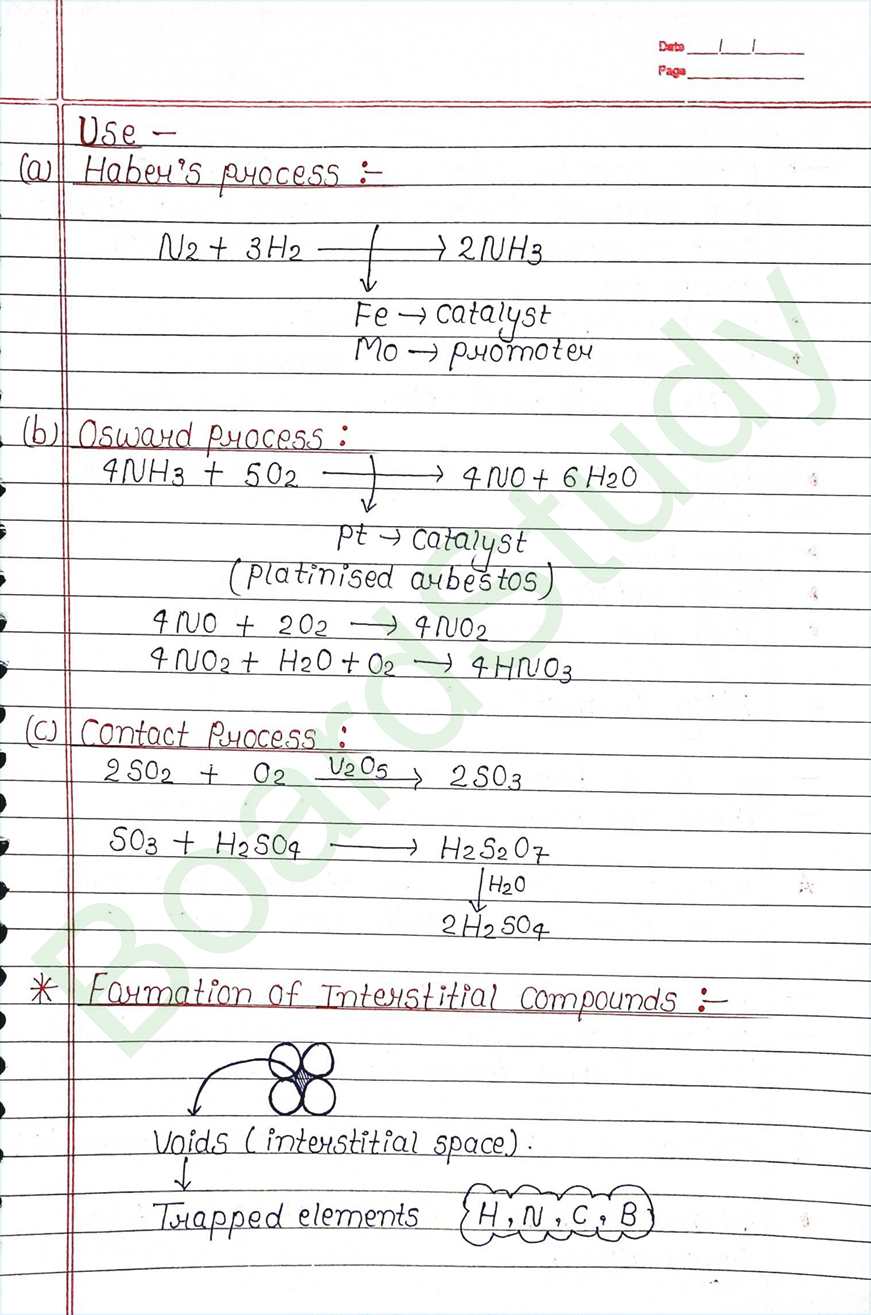 Date __/__/__
Page
Use –
(a) Haber's process :-
N2 + 3H2 → 2NH3
Fe → catalyst
Mo → promoter
(b) Osward process :
4NH3 + 5O2 → 4NO + 6H2O
Pt → catalyst
(Platinised arbestos)
4NO + 2O2 → 4NO2
4NO2 + H2O + O2 → 4HNO3
(c) Contact Process :
2SO2 + O2 V2O5→ 2SO3
SO3 + H2SO4 → H2S2O7
↓ H2O
2H2SO4
* Farmation of Interstitial compounds :-
Voids (interstitial space).
↓
Trapped elements {H, N, C, B}
BoardStudy